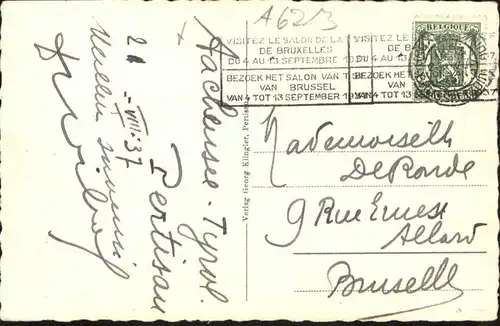 A6213
VISITEZ LE SALON DE LA
DE BRUXELLES
DU 4 AU 13 SEPTEMBRE 1937
BEZOEK HET SALON VAN T
VAN BRUSSEL
VAN 4 TOT 13 SEPTEMBER 1937
VISITEZ LE
DE B
DU 4 AU 13
BEZOEK HET
VAN
VAN 4 TOT 13
BELGIQUE
Aachensee-Tyrol.
Pertisau
21-VIII:37
Verlag Georg Klingler, Pertisau
Mademoiselle
De Ronde
9 Rue Ernest
Allard
Bruxelles